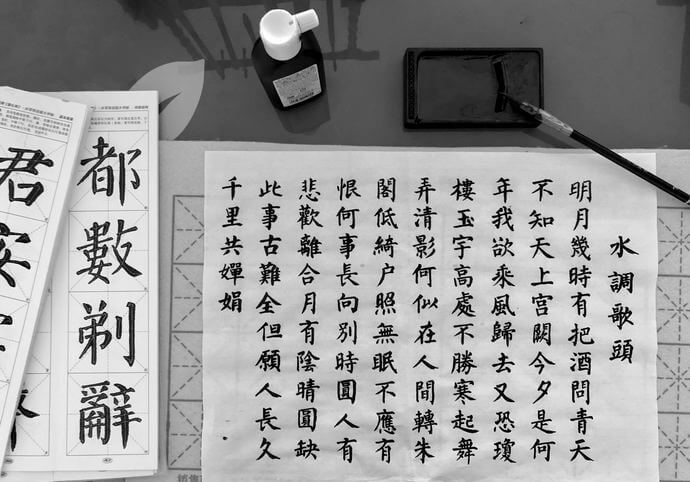 水調歌頭
明月幾時有把酒問青天
不知天上宫闕今夕是何
年我欲乘風歸去又恐瓊
樓玉宇高處不勝寒起舞
弄清影何似在人間轉朱
閣低綺户照無眠不應有
恨何事長向别時圓人有
悲歡離合月有陰晴圓缺
此事古難全但願人長久
千里共嬋娟
都數剃辭
君